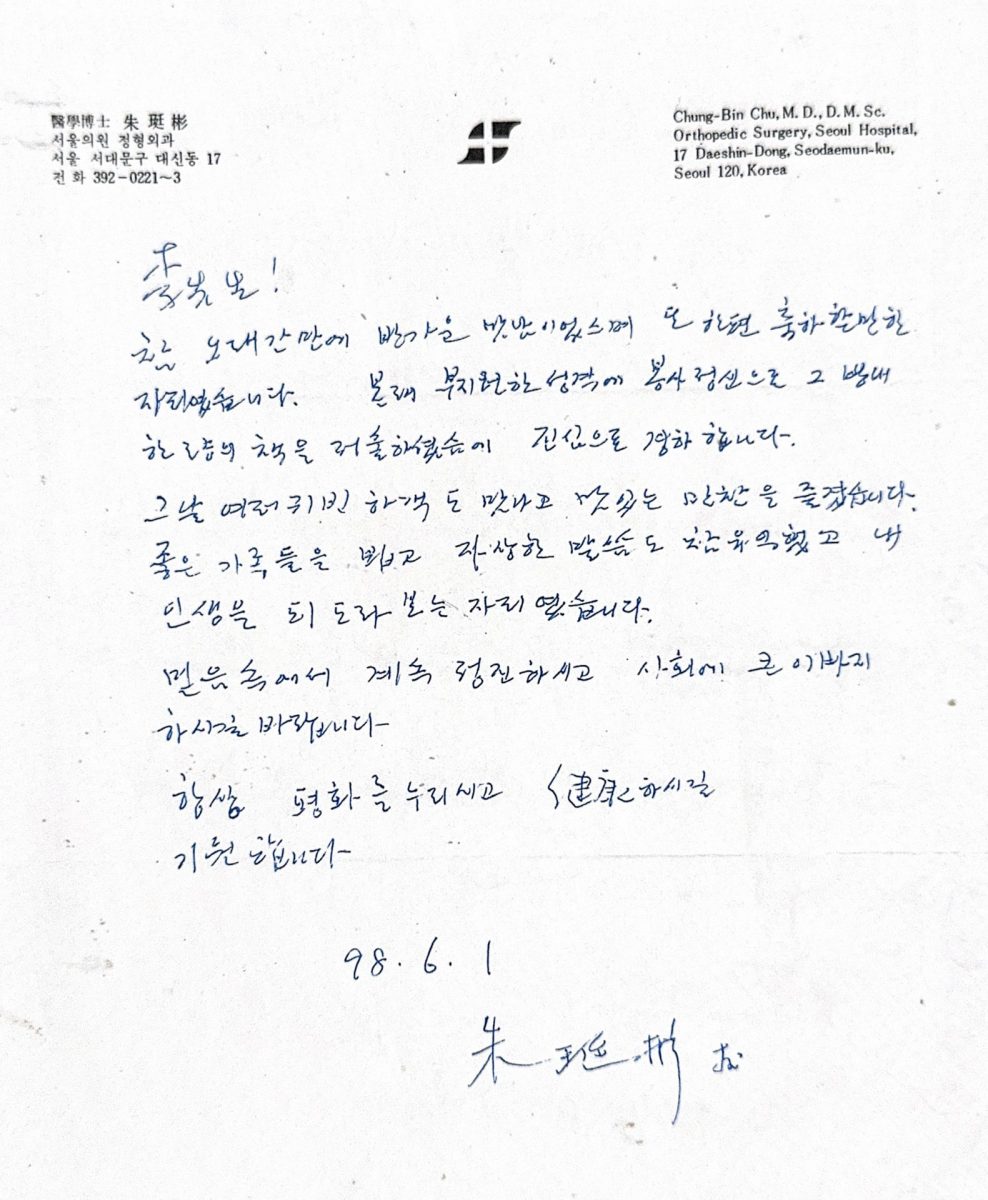 醫學博士 朱 珽 彬
서울의원 정형외과
서울 서대문구 대신동 17
전 화 392-0221~3
Chung-Bin Chu, M. D., D. M. Sc.
Orthopedic Surgery, Seoul Hospital,
17 Daeshin-Dong, Seodaemun-ku,
Seoul 120, Korea
李先生!
참 오래간만에 반가운 만남이었으며 또 한편 축하할만한
자리였습니다. 본래 부지런한 성격에 봉사정신으로 그 방대
한 량의 책을 저술하셨음에 진심으로 경하 합니다.
그날 여러 귀빈 하객도 만나고 맛있는 만찬을 즐겼습니다.
좋은 가족들을 뵙고 자상한 말씀도 참 유익했고 내
인생을 되 도라 보는 자리 였습니다.
믿음 속에서 계속 정진하시고 사회에 큰 이바지
하시길 바랍니다
항상 평화를 누리시고 健康하시길
기원 합니다
98. 6. 1
朱 珽 彬